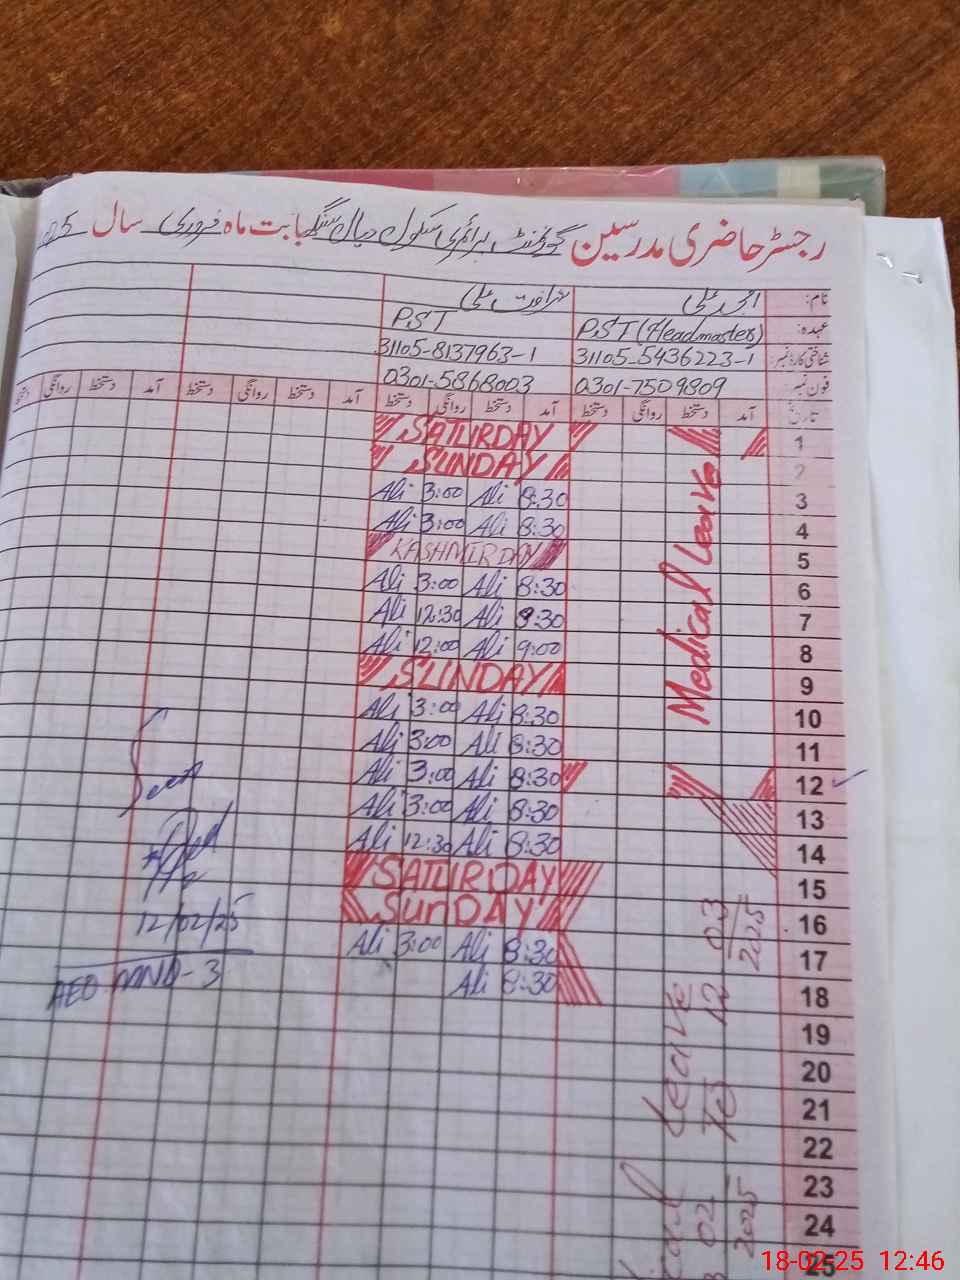 رجسٹر حاضری مدرسین گورنمنٹ پرائمری سکول دیال سنگھ بابت ماہ فروری سال
نام: امجد علی شرافت علی
عہدہ: PST (Headmaster) PST
شناختی کارڈ نمبر: 31105-5436223-1 31105-8137963-1
فون نمبر: 0301-7509809 0301-5868003
تاریخ آمد دستخط روانگی دستخط آمد دستخط روانگی دستخط آمد دستخط روانگی دستخط آمد دستخط روانگی دستخط
1 SATURDAY
2 SUNDAY
3 Ali 3:00 Ali 8:30
4 Ali 3:00 Ali 8:30
5 KASHMIR DAY
6 Ali 3:00 Ali 8:30
7 Ali 12:30 Ali 8:30
8 Ali 12:00 Ali 9:00
9 SUNDAY
10 Ali 3:00 Ali 8:30
11 Ali 3:00 Ali 8:30
12 Ali 3:00 Ali 8:30
13 Ali 3:00 Ali 8:30
14 Ali 12:30 Ali 8:30
15 SATURDAY
16 SUNDAY
17 Ali 3:00 Ali 8:30
18 Ali 8:30
19
20
21
22
23
24
25
Medical Leave
Leave
02 2025 To 12 03 2025
12/02/25
AEO MND-3
18-02-25 12:46